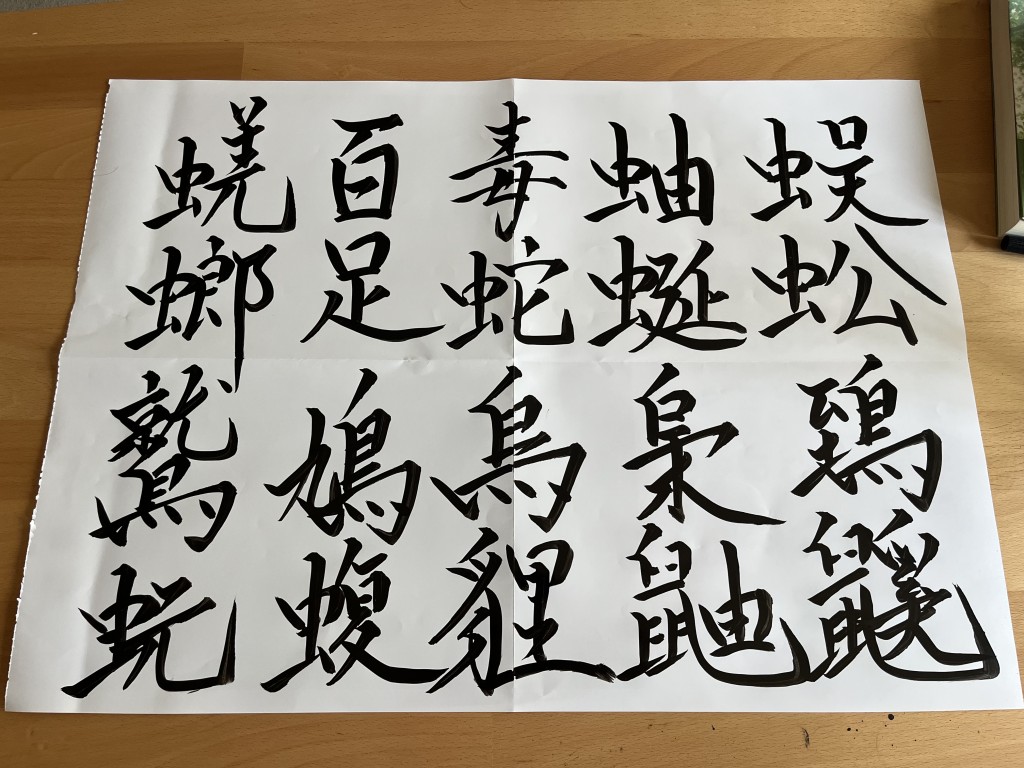 蜈蚣鵄鼷
蚰蜒梟鼬
毒蛇烏貍
百足鳩蝮
蜣螂鷲蚖